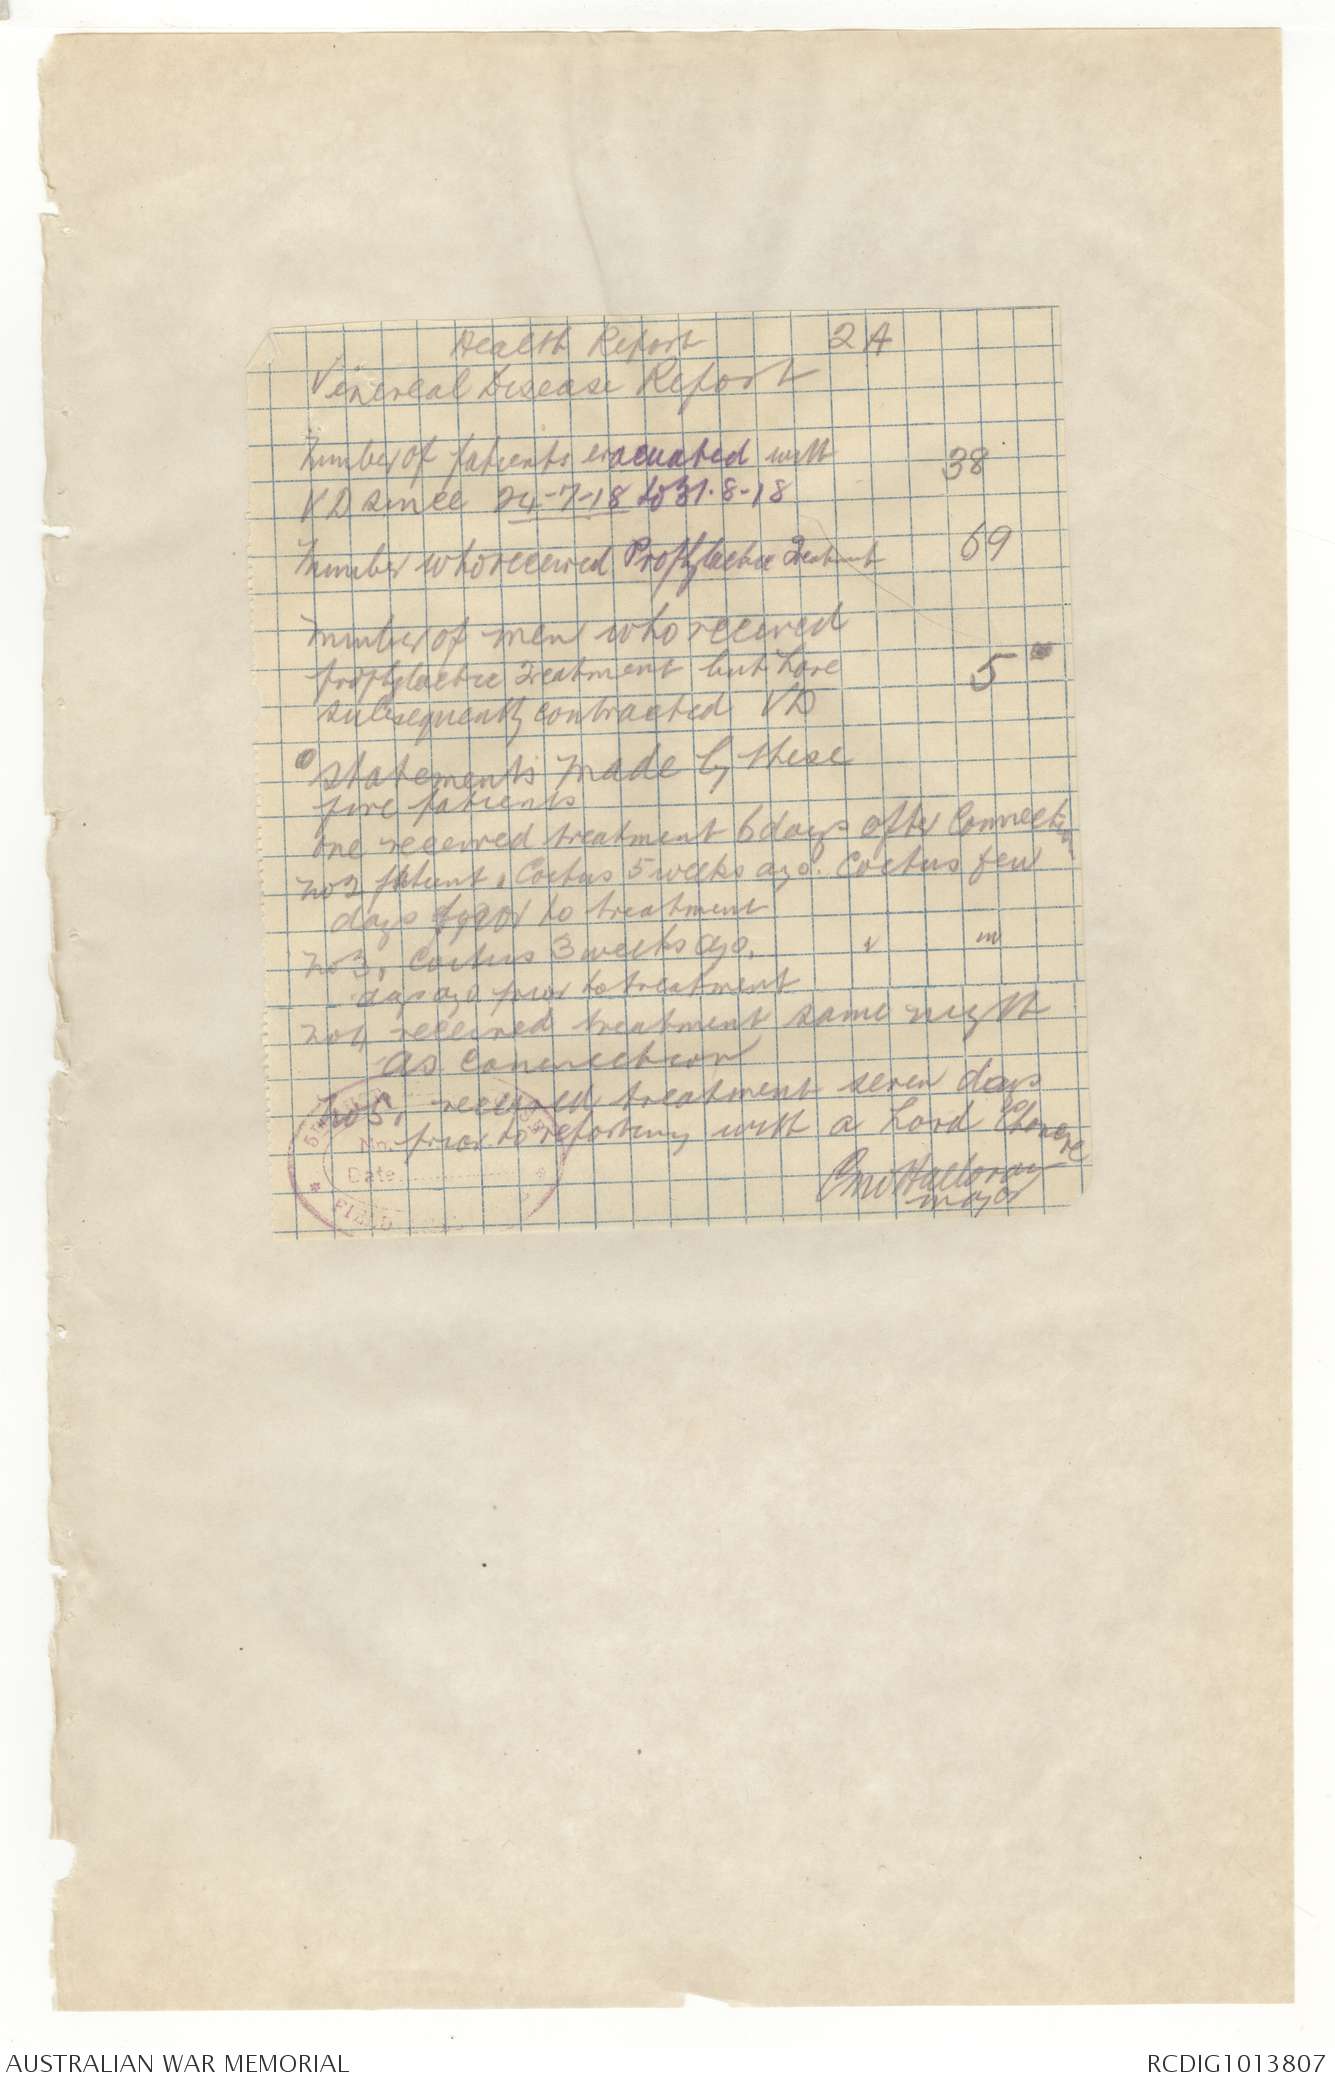 Health Report 2A
Venereal Disease Report
Number of patients evacuated with 38
VD since 24-7-18 to 31-8-18
Number who received Prophylactic Treatment 69
Number of men who received
prophylactic Treatment but have 5
subsequently contracted VD
statements made by these
five patients
one received treatment 6 days after Connection
No 2 patient, Coitus 5 weeks ago. Coitus few
days prior to treatment
No 3, Coitus 3 weeks ago. " "
days ago prior to treatment
No 4 received treatment same night
as connection
No 5, received treatment seven days
prior to reporting with a hard Chancre
Halloran
Major
No.
Date
FIELD
AUSTRALIAN WAR MEMORIAL
RCDIG1013807